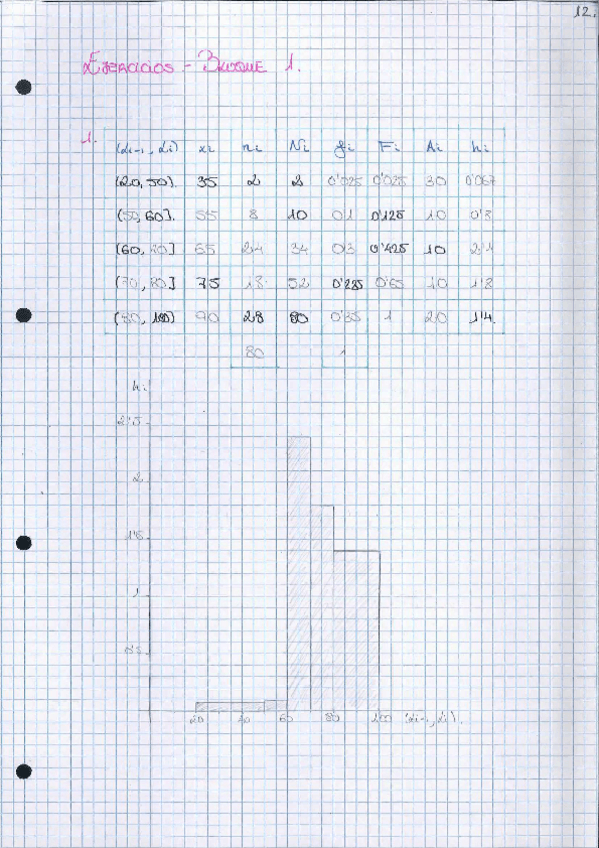 12.
EJERCICIOS - BLOQUE 1.
1. (Li-1, Li) xi ni Ni fi Fi Ai hi
(20, 50]. 35 2 2 0'025 0'025 30 0'067
(50, 60]. 55 8 10 0'1 0'125 10 0'8
(60, 70] 65 24 34 0'3 0'425 10 2'4
(70, 80] 75 18 52 0'225 0'65 10 1'8
(80, 100) 90 28 80 0'35 1 20 1'4.
80 1
hi
2'5
2
1'5
1
0'5
20 40 60 80 100 (Li-1, Li).